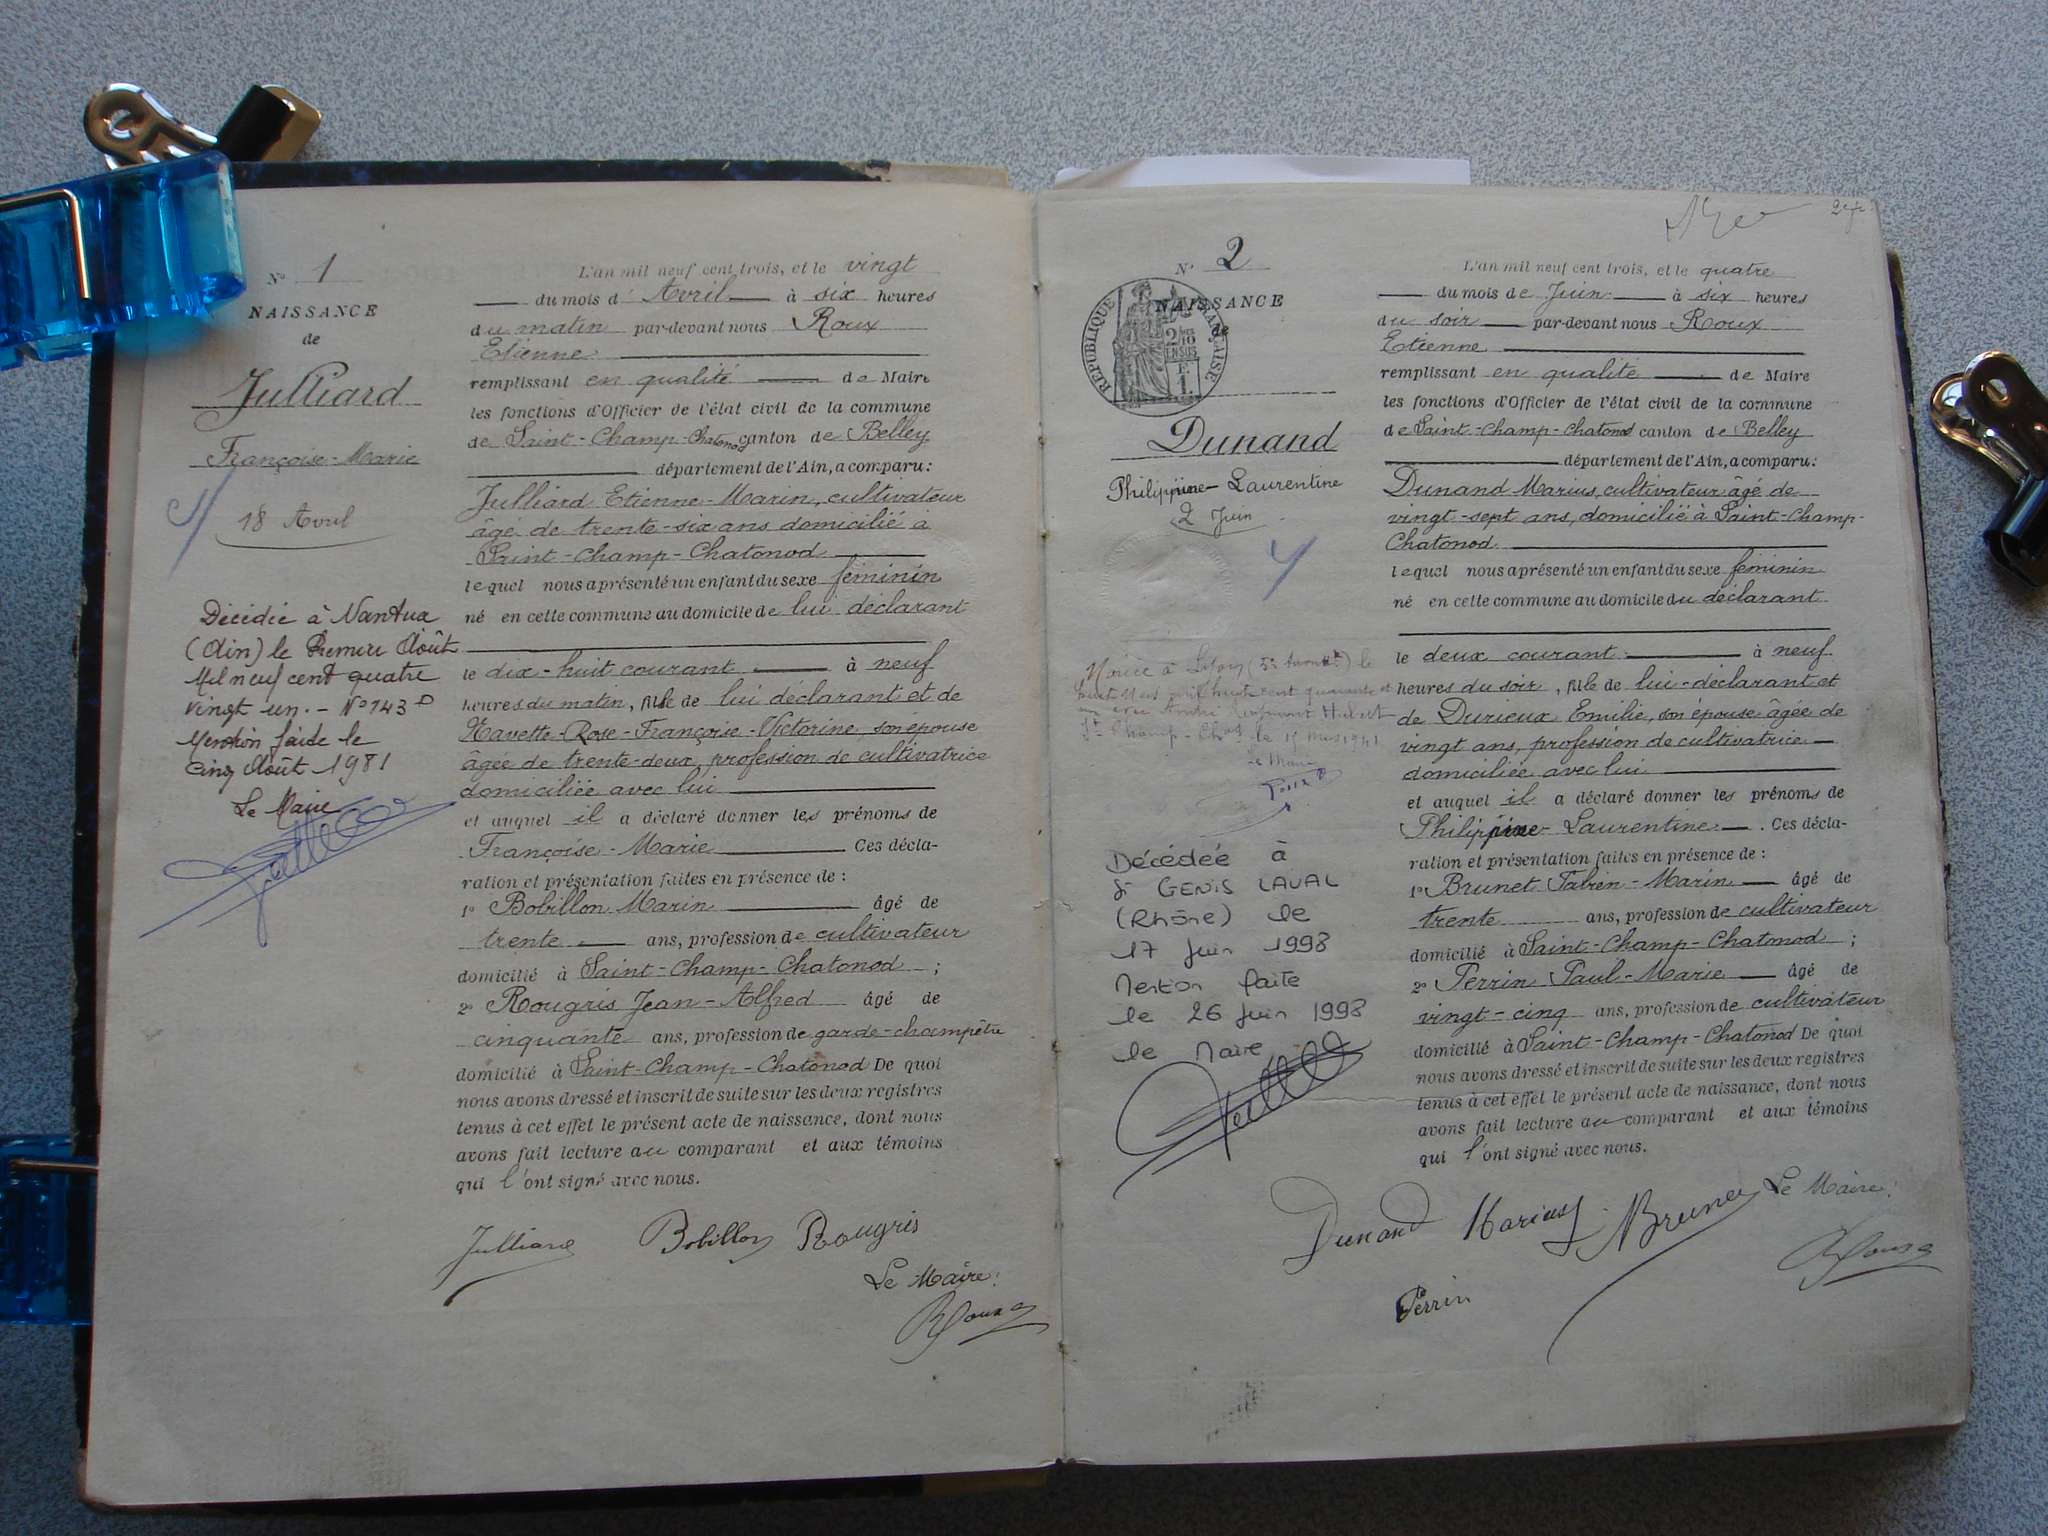 N° 1
NAISSANCE
de
Julliard
Françoise-Marie
18 Avril
Décédée à Nantua
(Ain) le Premier Août
Mil neuf cent quatre
vingt un. - N° 143
Mention faite le
cinq Août 1981
Le Maire
L'an mil neuf cent trois, et le vingt
du mois d' Avril à six heures
du matin par-devant nous Roux
Etienne
remplissant en qualité de Maire
les fonctions d'Officier de l'état civil de la commune
de Saint-Champ-Chatonod canton de Belley
département de l'Ain, a comparu:
Julliard Etienne-Marin, cultivateur
âgé de trente-six ans domicilié à
Saint-Champ-Chatonod
lequel nous a présenté un enfant du sexe féminin
né en cette commune au domicile de lui déclarant
le dix-huit courant à neuf
heures du matin, fille de lui déclarant et de
Navette-Rose-Françoise-Victorine, son épouse
âgée de trente-deux, profession de cultivatrice
domiciliée avec lui
et auquel il a déclaré donner les prénoms de
Françoise-Marie Ces décla-
ration et présentation faites en présence de:
1° Bobillon Marin âgé de
trente ans, profession de cultivateur
domicilié à Saint-Champ-Chatonod;
2° Rougris Jean-Alfred âgé de
cinquante ans, profession de garde-champêtre
domicilié à Saint-Champ-Chatonod De quoi
nous avons dressé et inscrit de suite sur les deux registres
tenus à cet effet le présent acte de naissance, dont nous
avons fait lecture au comparant et aux témoins
qui l'ont signé avec nous.
Julliard Bobillon Rougris
Le Maire:
Roux
N° 2
NAISSANCE
de
RÉPUBLIQUE FRANÇAISE
2/10
EN SUS
1 F.
Dunand
Philippine-Laurentine
2 Juin
Mariée à Lyon (5e arrondt) le
mil huit cent quarante et
un avec André
St Champ-Chat le 15 mars 1941
Le Maire
Roux
Décédée à
St GENIS LAVAL
(Rhône) le
17 juin 1998
Mention faite
le 26 juin 1998
le Maire
L'an mil neuf cent trois, et le quatre
du mois de Juin à six heures
du soir par-devant nous Roux
Etienne
remplissant en qualité de Maire
les fonctions d'Officier de l'état civil de la commune
de Saint-Champ-Chatonod canton de Belley
département de l'Ain, a comparu:
Dunand Marius, cultivateur âgé de
vingt-sept ans, domicilié à Saint-Champ-
Chatonod
lequel nous a présenté un enfant du sexe féminin
né en cette commune au domicile du déclarant
le deux courant à neuf
heures du soir, fille de lui-déclarant et
de Durieux Emilie, son épouse âgée de
vingt ans, profession de cultivatrice
domiciliée avec lui
et auquel il a déclaré donner les prénoms de
Philippine-Laurentine. Ces décla-
ration et présentation faites en présence de:
1° Brunet Fabien-Marin âgé de
trente ans, profession de cultivateur
domicilié à Saint-Champ-Chatonod;
2° Perrin Paul-Marie âgé de
vingt-cinq ans, profession de cultivateur
domicilié à Saint-Champ-Chatonod De quoi
nous avons dressé et inscrit de suite sur les deux registres
tenus à cet effet le présent acte de naissance, dont nous
avons fait lecture au comparant et aux témoins
qui l'ont signé avec nous.
Dunand Marius Brunet Le Maire:
Roux
Perrin